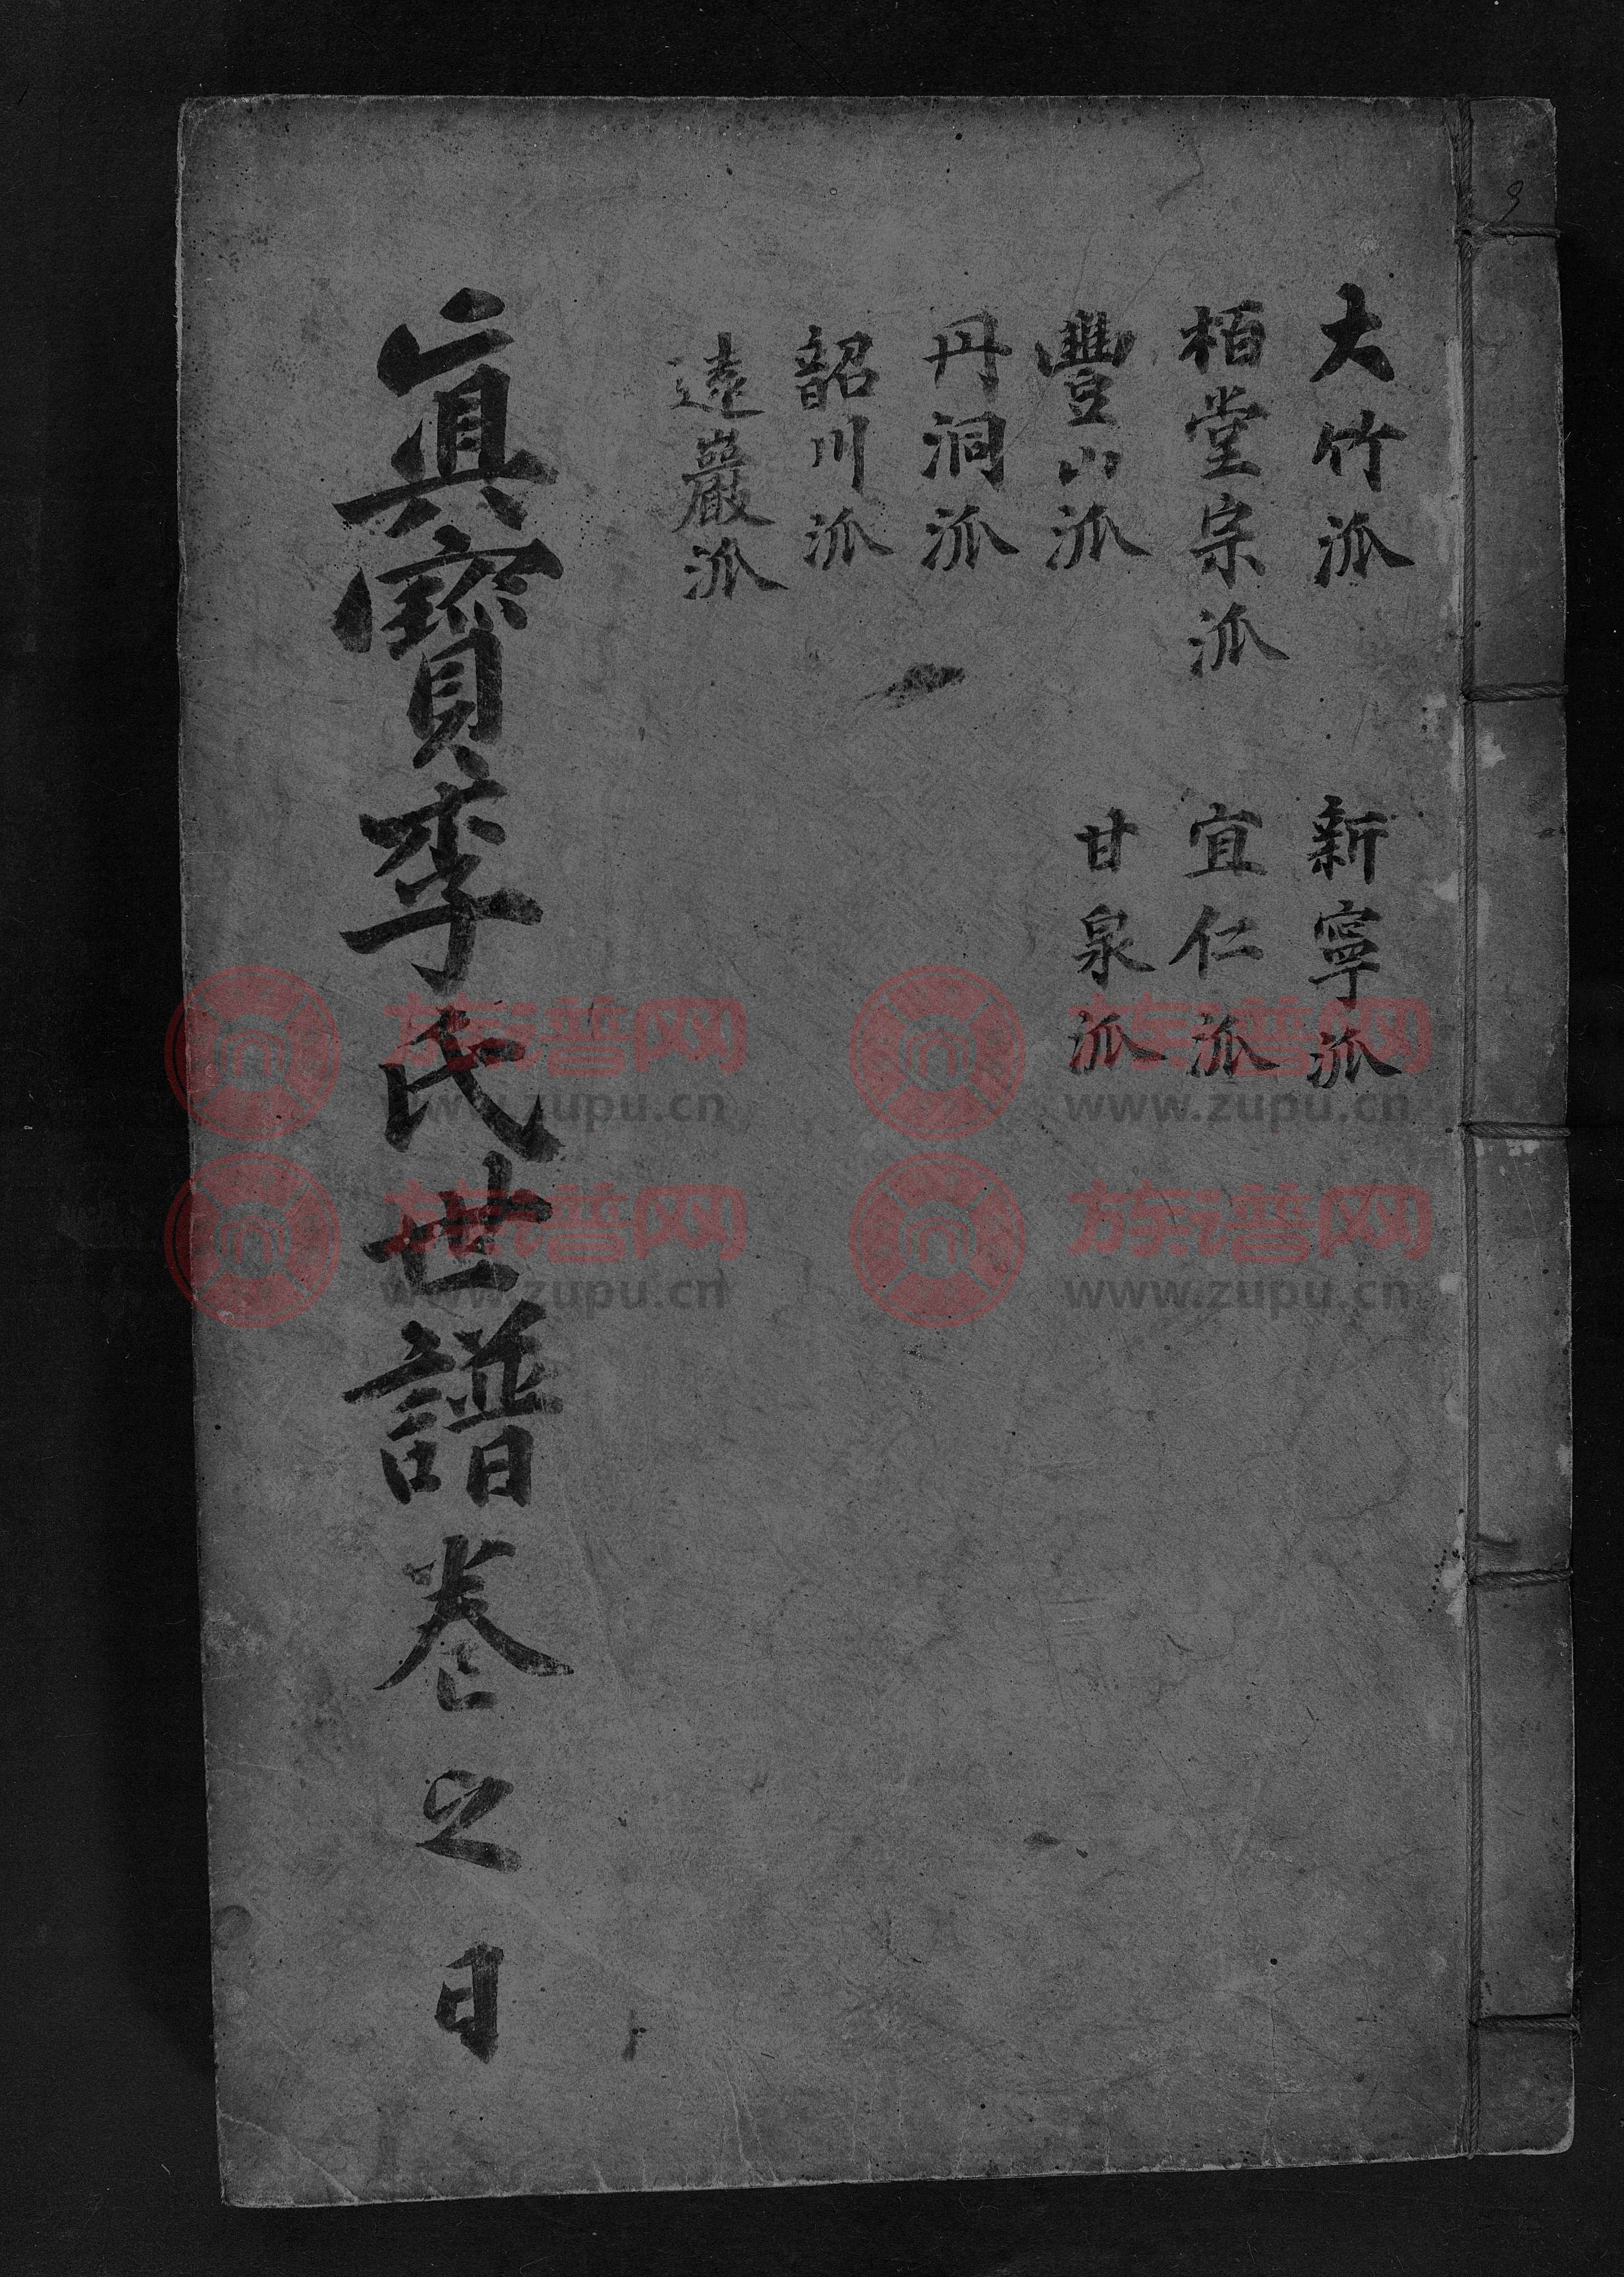 大竹派
栢堂宗派
豐山派
丹洞派
韶川派
遠巖派
新寧派
宜仁派
甘泉派
眞寶李氏世譜卷之日
9
族谱网
www.zupu.cn
族谱网
www.zupu.cn
族谱网
www.zupu.cn
族谱网
www.zupu.cn